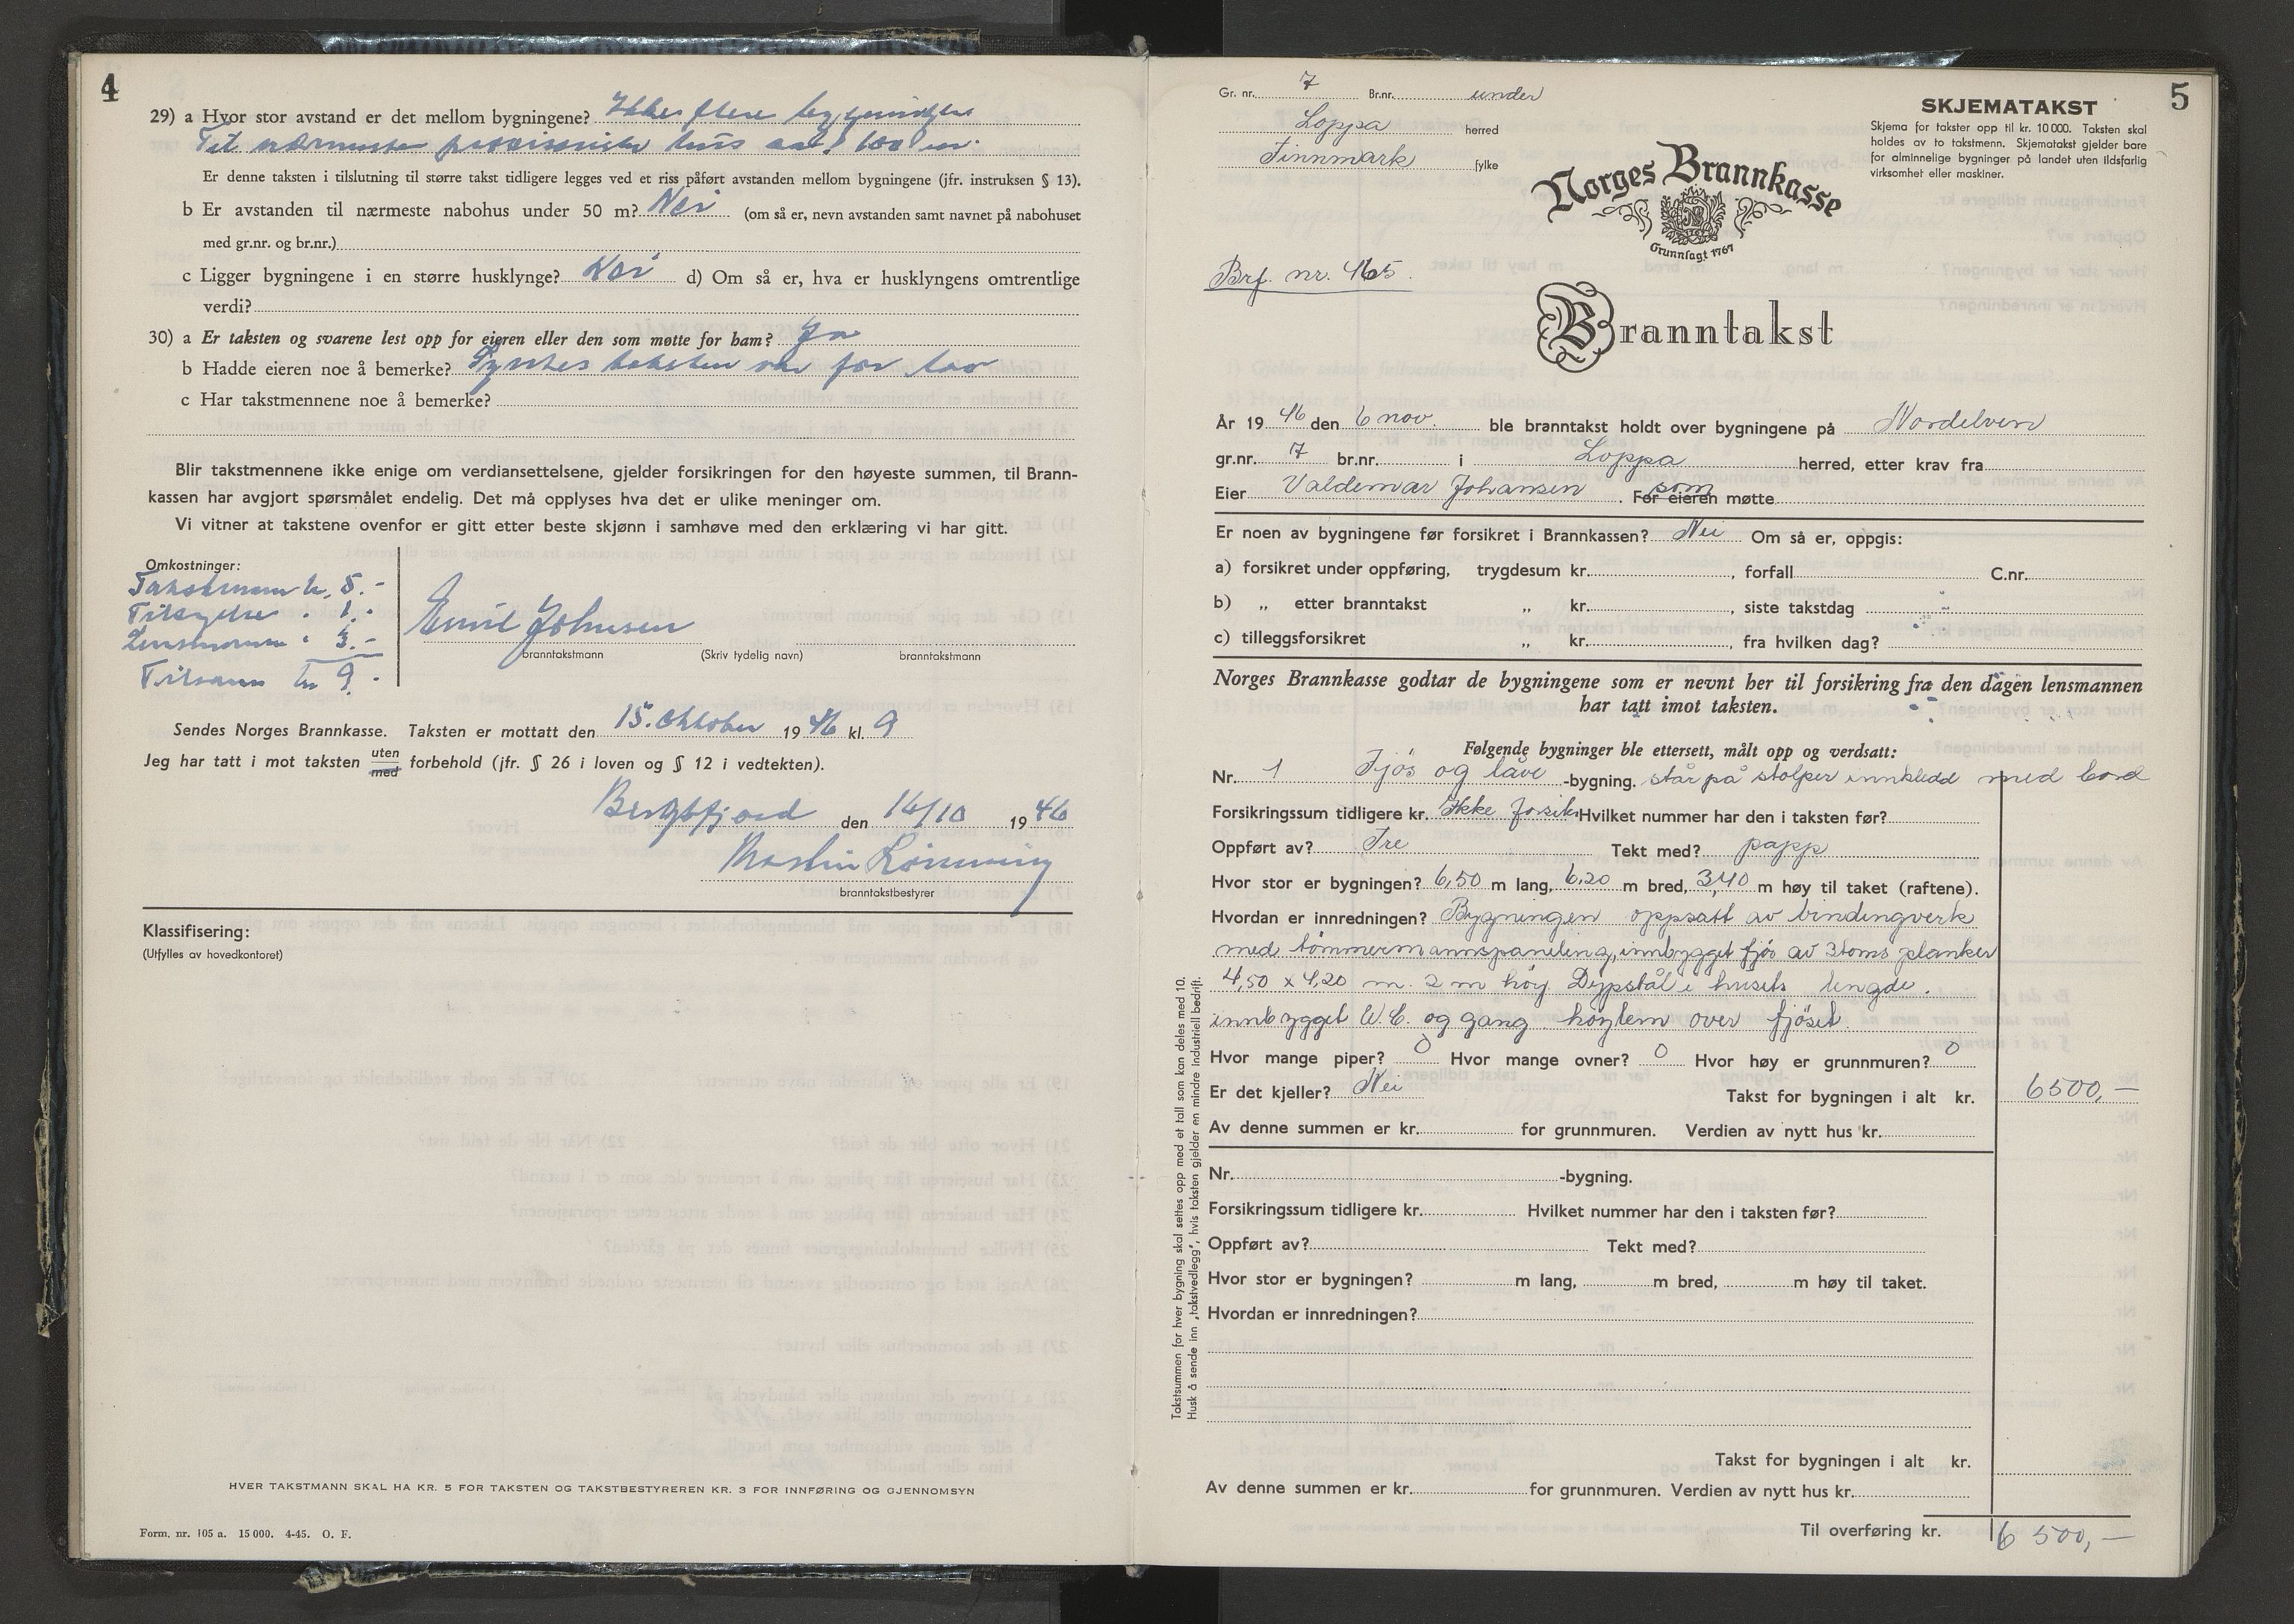 4
29) a Hvor stor avstand er det mellom bygningene? Ikke flere bygninger
Til nærmeste provisoriske hus ca. 100 m.
Er denne taksten i tilslutning til større takst tidligere legges ved et riss påført avstanden mellom bygningene (jfr. instruksen § 13).
b Er avstanden til nærmeste nabohus under 50 m? Nei (om så er, nevn avstanden samt navnet på nabohuset
med gr.nr. og br.nr.)
c Ligger bygningene i en større husklynge? Nei d) Om så er, hva er husklyngens omtrentlige
verdi?
30) a Er taksten og svarene lest opp for eieren eller den som møtte for ham? Ja
b Hadde eieren noe å bemerke? Syntes taksten var for lav
c Har takstmennene noe å bemerke?
Blir takstmennene ikke enige om verdiansettelsene, gjelder forsikringen for den høyeste summen, til Brann-
kassen har avgjort spørsmålet endelig. Det må opplyses hva det er ulike meninger om.
Vi vitner at takstene ovenfor er gitt etter beste skjønn i samhøve med den erklæring vi har gitt.
Omkostninger:
Takstmann kr. 5.-
1.-
Lensmannen " 3.-
Tilsamm kr 9.-
Emil Johnsen
branntakstmann (Skriv tydelig navn) branntakstmann
Sendes Norges Brannkasse. Taksten er mottatt den 15. oktober 1946 kl. 9
Jeg har tatt i mot taksten uten med forbehold (jfr. § 26 i loven og § 12 i vedtekten).
Bergsfjord den 16/10 1946
Martin Lønning
branntakstbestyrer
Klassifisering:
(Utfylles av hovedkontoret)
HVER TAKSTMANN SKAL HA KR. 5 FOR TAKSTEN OG TAKSTBESTYREREN KR. 3 FOR INNFØRING OG GJENNOMSYN
Form. nr. 105 a. 15 000. 4-45. O. F.
5
Gr. nr. 7 Br.nr. under
Loppa herred
Finnmark fylke
SKJEMATAKST
Skjema for takster opp til kr. 10 000. Taksten skal
holdes av to takstmenn. Skjematakst gjelder bare
for alminnelige bygninger på landet uten ildsfarlig
virksomhet eller maskiner.
Norges Brannkasse
Grunnlagt 1767
Brf. nr. 465.
Branntakst
År 1946 den 6 nov. ble branntakst holdt over bygningene på Nordelven
gr.nr. 7 br.nr. i Loppa herred, etter krav fra
Eier Valdemar Johansen. For eieren som møtte
Er noen av bygningene før forsikret i Brannkassen? Nei Om så er, oppgis:
a) forsikret under oppføring, trygdesum kr. , forfall C.nr.
b) „ etter branntakst „ kr. , siste takstdag
c) tilleggsforsikret „ kr. , fra hvilken dag?
Norges Brannkasse godtar de bygningene som er nevnt her til forsikring fra den dagen lensmannen
har tatt imot taksten.
Følgende bygninger ble ettersett, målt opp og verdsatt:
Nr. 1 Fjøs og låve -bygning. står på stolper innkledd med bord
Forsikringssum tidligere kr. Ikke forsik. Hvilket nummer har den i taksten før?
Oppført av? Tre Tekt med? papp
Hvor stor er bygningen? 6,50 m lang, 6,20 m bred, 3,40 m høy til taket (raftene).
Hvordan er innredningen? Bygningen oppsatt av bindingverk
med tømmermannspaneling, innbygget fjøs av 3 toms planker
4,50 x 4,20 m. 2 m høy Dypstål i husets lengde.
innbygget W.C. og gang høylem over fjøset.
Hvor mange piper? 0 Hvor mange ovner? 0 Hvor høy er grunnmuren? 0
Er det kjeller? Nei Takst for bygningen i alt kr. 6500,—
Av denne summen er kr. for grunnmuren. Verdien av nytt hus kr.
Nr. -bygning.
Forsikringssum tidligere kr. Hvilket nummer har den i taksten før?
Oppført av? Tekt med?
Hvor stor er bygningen? m lang, m bred, m høy til taket.
Hvordan er innredningen?
Takst for bygningen i alt kr.
Av denne summen er kr. for grunnmuren. Verdien av nytt hus kr.
Til overføring kr. 6500,—
Takstsummen for hver bygning skal settes opp med et tall som kan deles med 10.
Husk å sende inn „takstvedlegg", hvis taksten gjelder en mindre industriell bedrift.